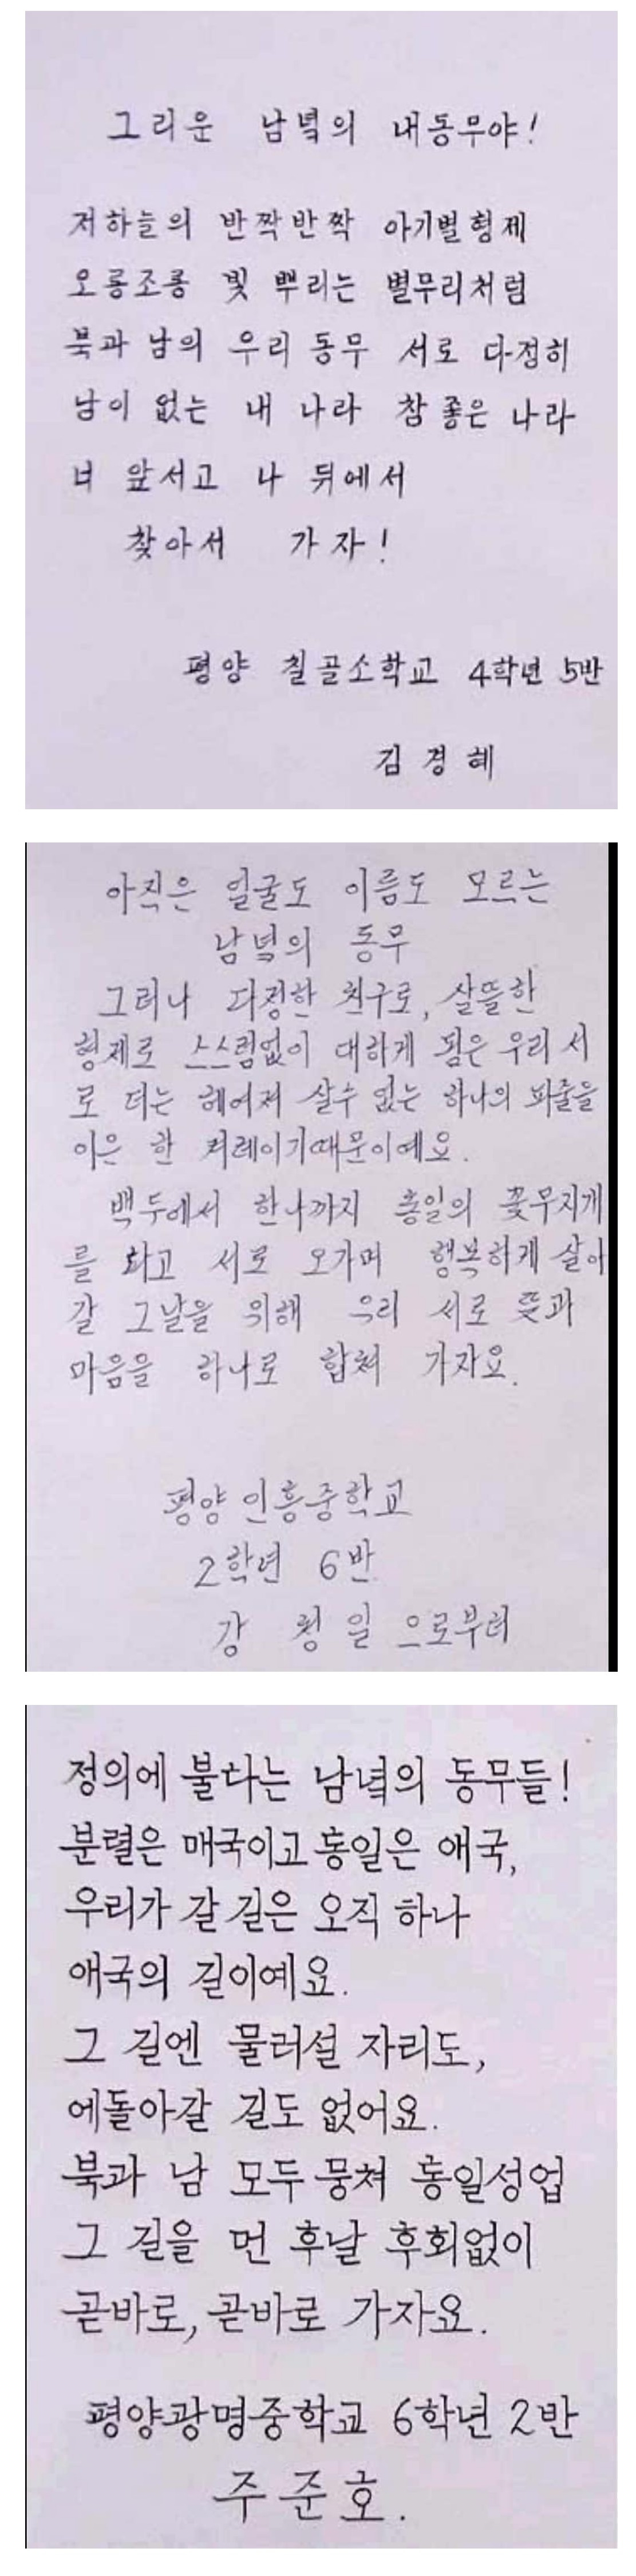 그리운 남녘의 내동무야!
저하늘의 반짝반짝 아기별형제
오롱조롱 빛 뿌리는 별무리처럼
북과 남의 우리 동무 서로 다정히
남이 없는 내 나라 참 좋은 나라
너 앞서고 나 뒤에서
찾아서 가자!
평양 칠골소학교 4학년 5반
김경혜
아직은 얼굴도 이름도 모르는
남녘의 동무
그러나 다정한 친구로, 살뜰한
형제로 스스럼없이 대하게 됨은 우리 서
로 더는 헤여져 살수 없는 하나의 피줄을
이은 한 겨레이기때문이예요.
백두에서 한나까지 통일의 꽃무지개
를 타고 서로 오가며 행복하게 살아
갈 그날을 위해 우리 서로 뜻과
마음을 하나로 합쳐 가자요.
평양인흥중학교
2학년 6반
강 일 으로부터
정의에 불타는 남녘의 동무들!
분렬은 매국이고 통일은 애국,
우리가 갈 길은 오직 하나
애국의 길이예요.
그 길엔 물러설 자리도,
에돌아갈 길도 없어요.
북과 남 모두 뭉쳐 통일성업
그 길을 먼 후날 후회없이
곧바로, 곧바로 가자요.
평양광명중학교 6학년 2반
주준호.